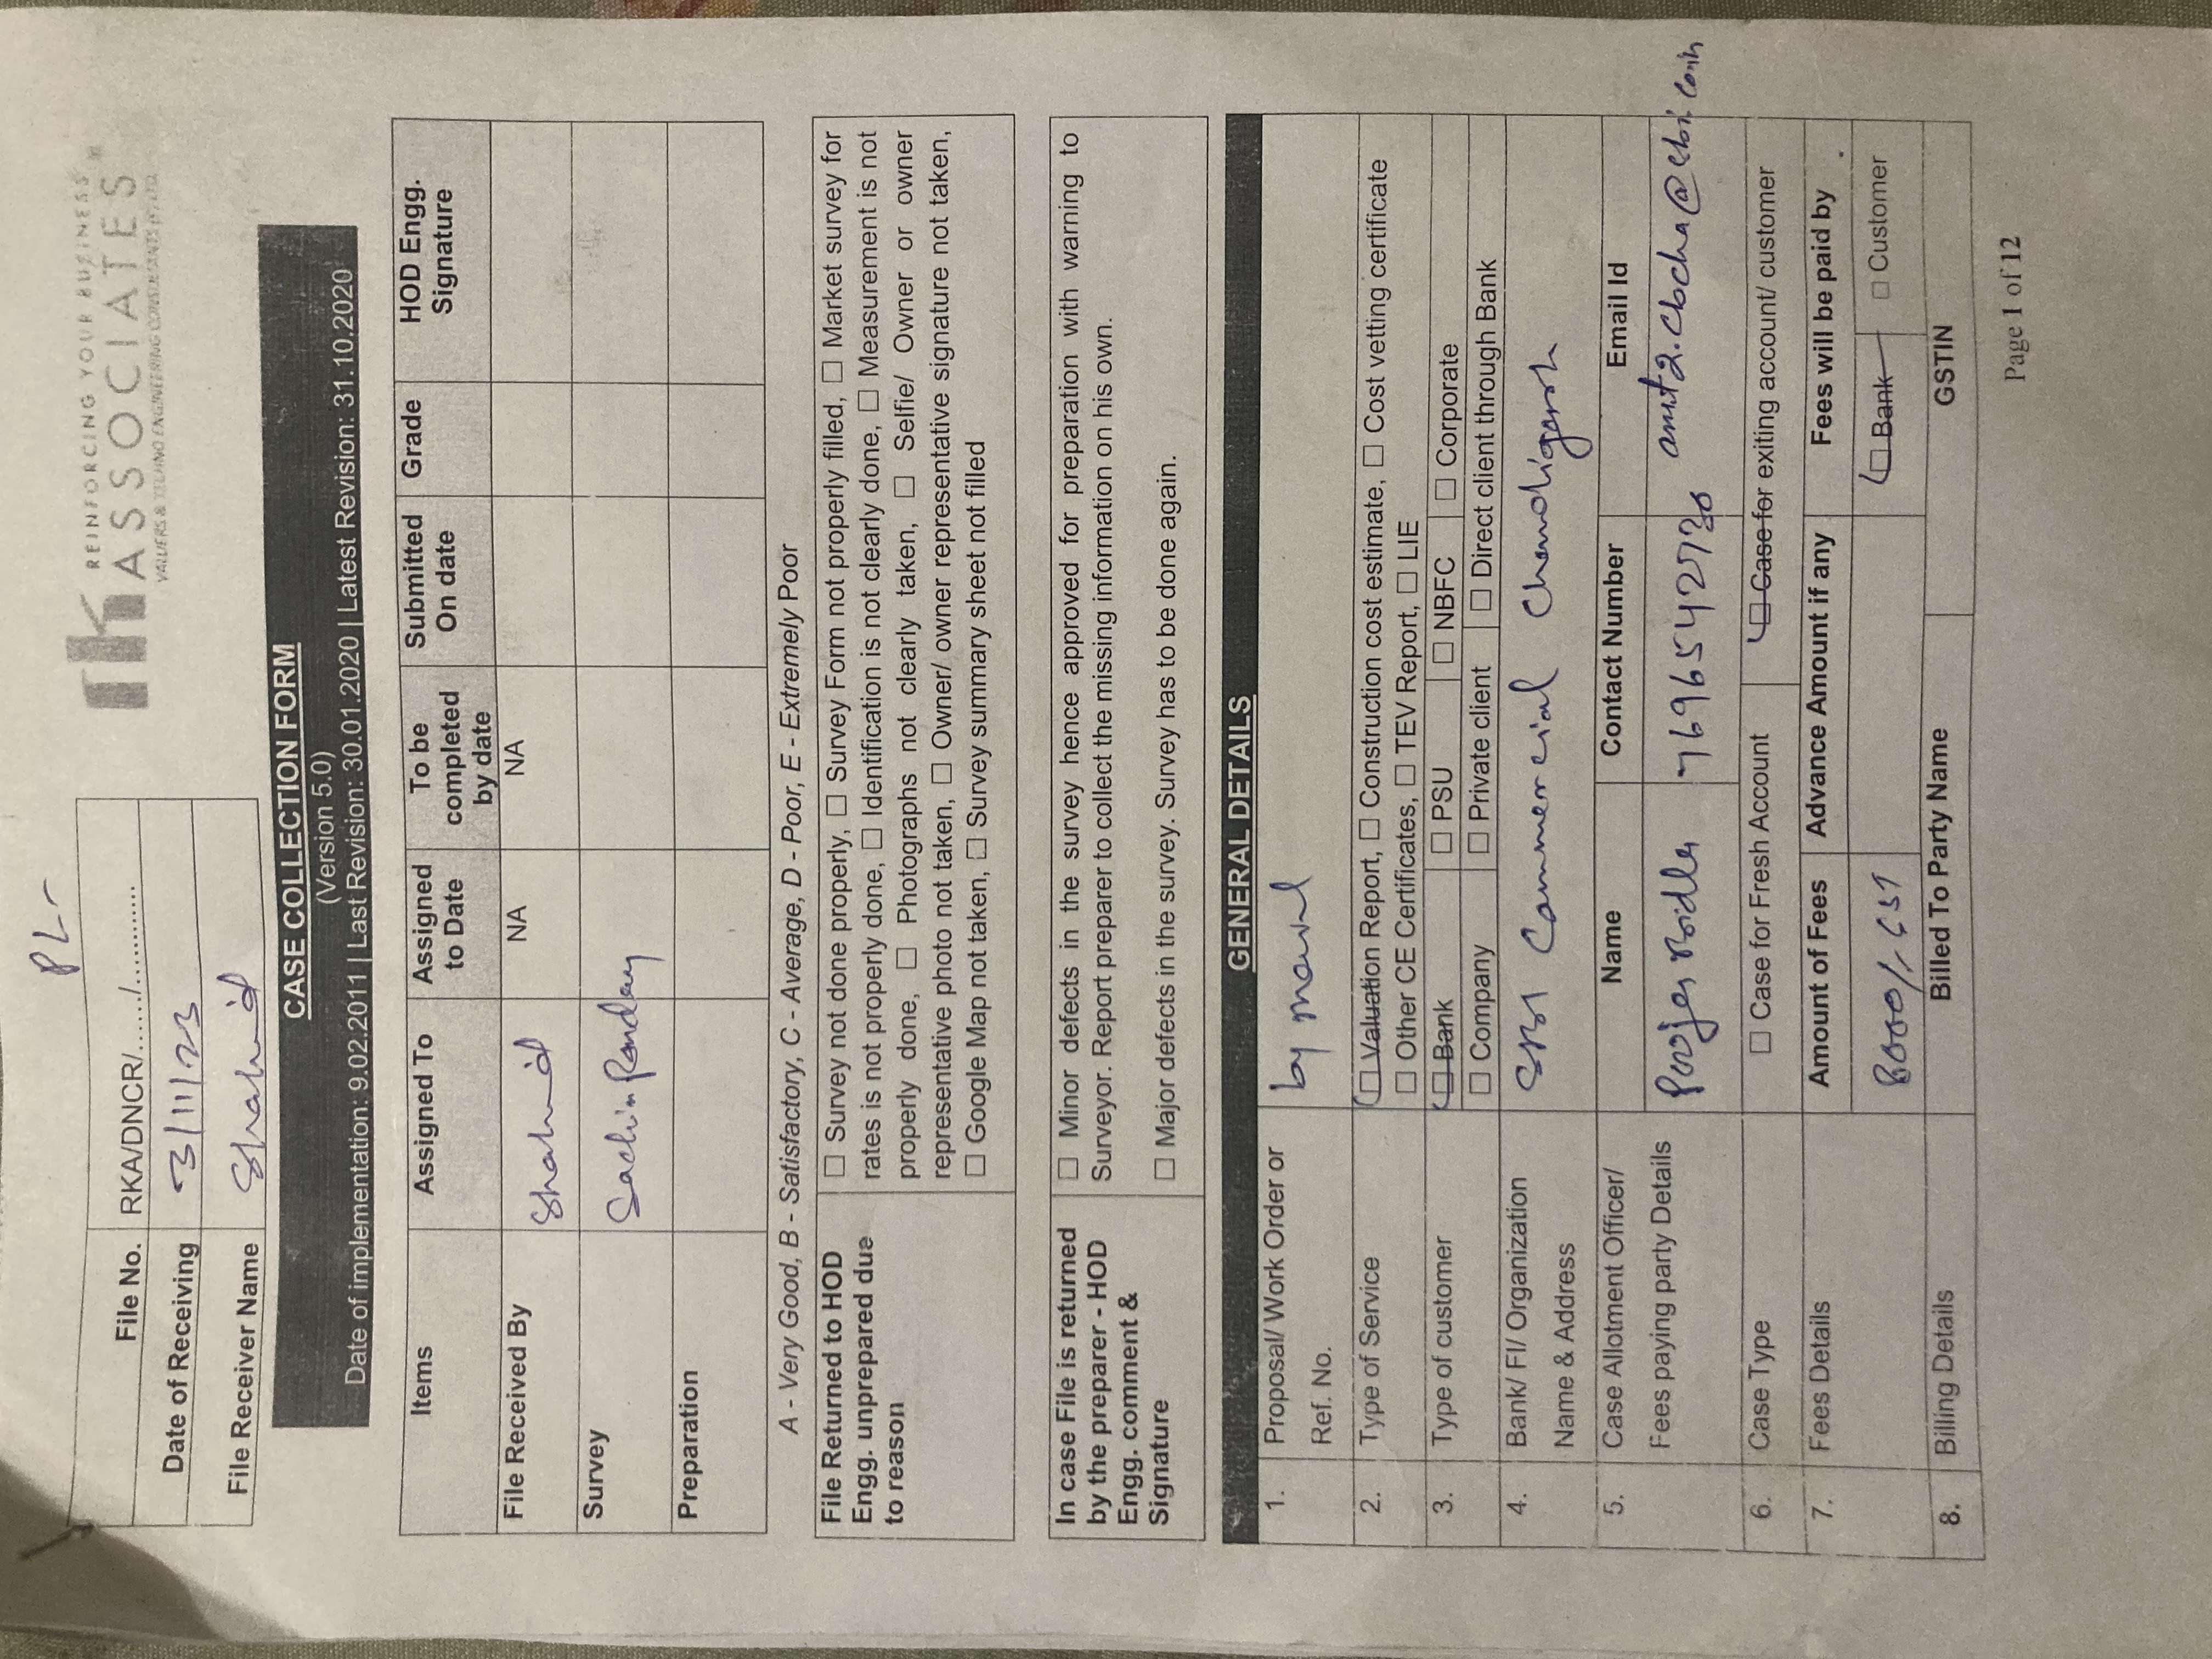 PL-
REINFORCING YOUR BUSINESS
rk ASSOCIATES
VALUERS & TECHNO ENGINEERING CONSULTANTS (P) LTD.
File No. RKA/DNCR/....../...........
Date of Receiving 3/11/23
File Receiver Name Shahid
CASE COLLECTION FORM
(Version 5.0)
Date of implementation: 9.02.2011 | Last Revision: 30.01.2020 | Latest Revision: 31.10.2020
Items Assigned To Assigned to Date To be completed by date Submitted On date Grade HOD Engg. Signature
File Received By Shahid NA NA
Survey Sachin Panday
Preparation
A - Very Good, B - Satisfactory, C - Average, D - Poor, E - Extremely Poor
File Returned to HOD Engg. unprepared due to reason
☐ Survey not done properly, ☐ Survey Form not properly filled, ☐ Market survey for
rates is not properly done, ☐ Identification is not clearly done, ☐ Measurement is not
properly done, ☐ Photographs not clearly taken, ☐ Selfie/ Owner or owner
representative photo not taken, ☐ Owner/ owner representative signature not taken,
☐ Google Map not taken, ☐ Survey summary sheet not filled
In case File is returned by the preparer - HOD Engg. comment & Signature
☐ Minor defects in the survey hence approved for preparation with warning to
Surveyor. Report preparer to collect the missing information on his own.
☐ Major defects in the survey. Survey has to be done again.
GENERAL DETAILS
1. Proposal/ Work Order or Ref. No. by
2. Type of Service ☐ Valuation Report, ☐ Construction cost estimate, ☐ Cost vetting certificate
☐ Other CE Certificates, ☐ TEV Report, ☐ LIE
3. Type of customer ☐ Bank ☐ PSU ☐ NBFC ☐ Corporate
☐ Company ☐ Private client ☐ Direct client through Bank
4. Bank/ FI/ Organization Name & Address SBI Commercial Chandigarh
5. Case Allotment Officer/ Fees paying party Details Name Contact Number Email Id
6. Case Type ☐ Case for Fresh Account ☐ Case for exiting account/ customer
7. Fees Details Amount of Fees Advance Amount if any Fees will be paid by
8000/- ☐ Bank ☐ Customer
8. Billing Details Billed To Party Name GSTIN
Page 1 of 12